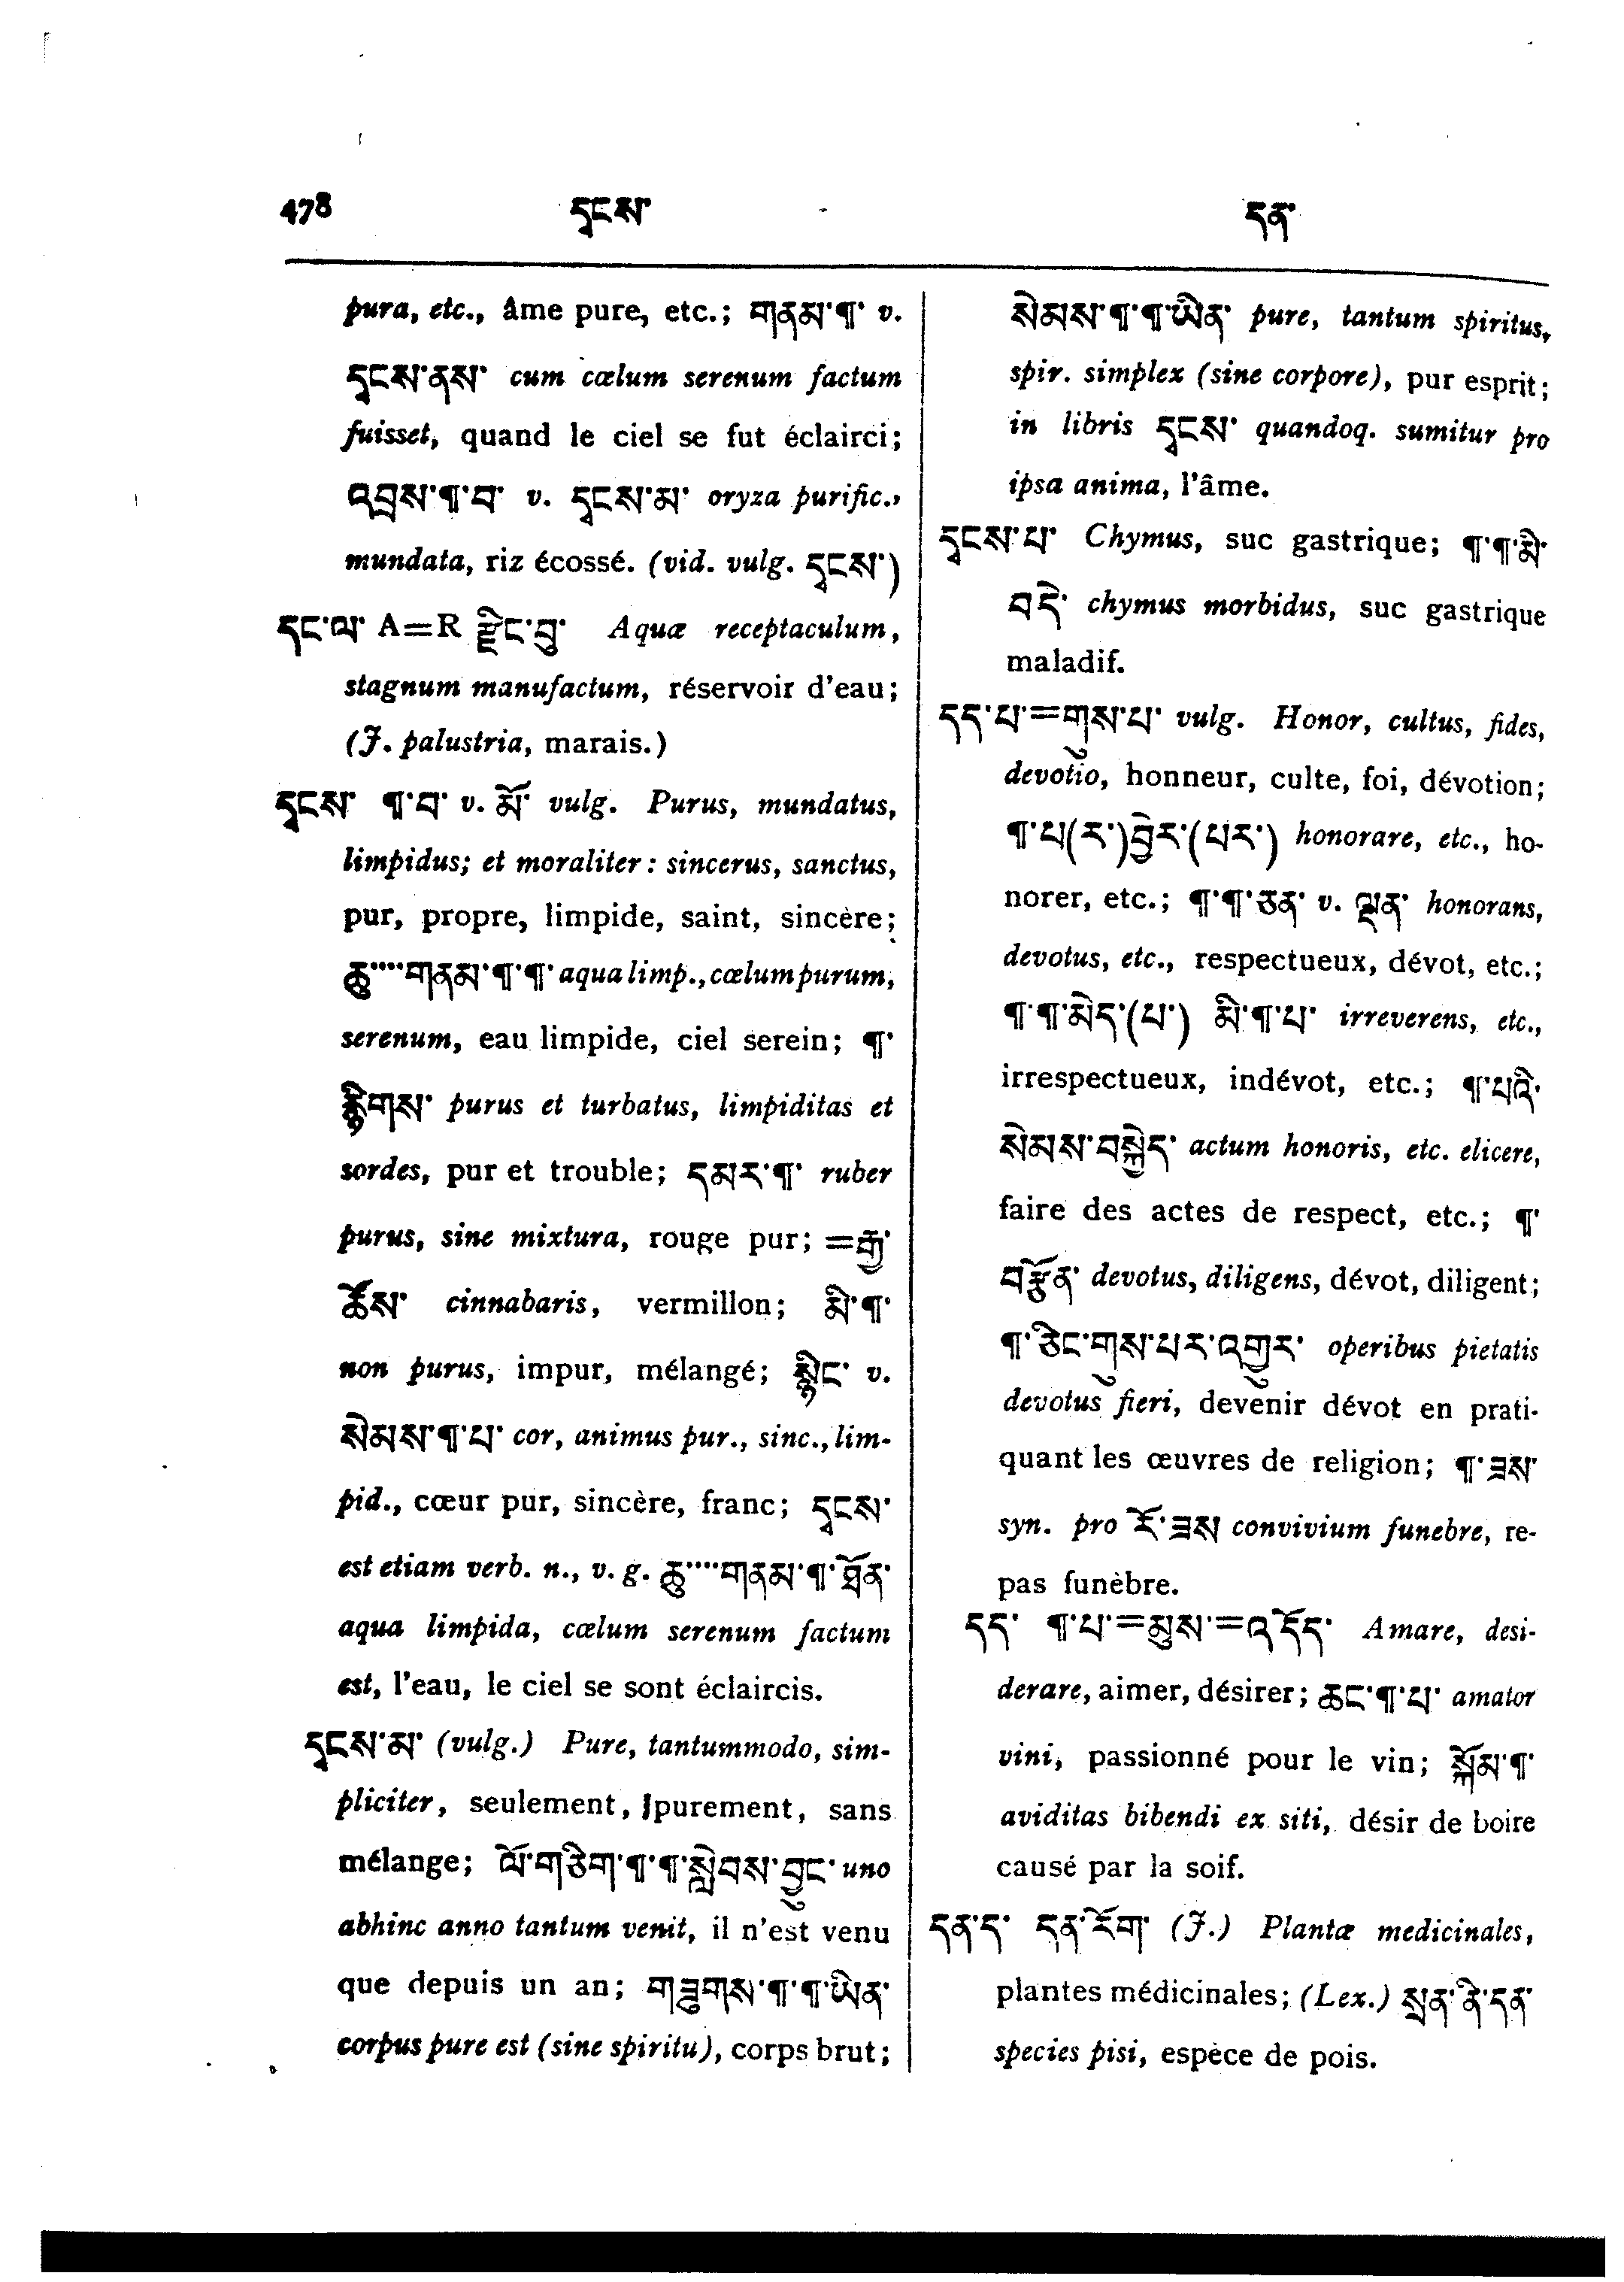 478 དྭངས་ དན་
pura, etc., âme pure, etc.; གནམ་¶་ v.
དྭངས་ནས་ cum cœlum serenum factum
fuisset, quand le ciel se fut éclairci;
འབྲས་¶་བ་ v. དྭངས་མ་ oryza purific.,
mundata, riz écossé. (vid. vulg. དྭངས་)
དང་ལ་ A=R རྫིང་བུ་ Aquæ receptaculum,
stagnum manufactum, réservoir d'eau;
(J. palustria, marais.)
དྭངས་ ¶་བ་ v. མོ་ vulg. Purus, mundatus,
limpidus; et moraliter: sincerus, sanctus,
pur, propre, limpide, saint, sincère;
ཆུ་་་་གནམ་¶་¶་ aqua limp., cœlum purum,
serenum, eau limpide, ciel serein; ¶་
སྙིགས་ purus et turbatus, limpiditas et
sordes, pur et trouble; དམར་¶་ ruber
purus, sine mixtura, rouge pur; =རྒྱ་
ཚོས་ cinnabaris, vermillon; མི་¶་
non purus, impur, mélangé; སྙིང་ v.
སེམས་¶་པ་ cor, animus pur., sinc., lim-
pid., cœur pur, sincère, franc; དྭངས་
est etiam verb. n., v. g. ཆུ་་་་གནམ་¶་ཐོན་
aqua limpida, cœlum serenum factum
est, l'eau, le ciel se sont éclaircis.
དྭངས་མ་ (vulg.) Pure, tantummodo, sim-
pliciter, seulement, purement, sans
mélange; ལོ་གཅིག་¶་¶་སླེབས་བྱུང་ uno
abhinc anno tantum venit, il n'est venu
que depuis un an; གཟུགས་¶་¶་ཡིན་
corpus pure est (sine spiritu), corps brut;
སེམས་¶་¶་ཡིན་ pure, tantum spiritus,
spir. simplex (sine corpore), pur esprit;
in libris དྭངས་ quandoq. sumitur pro
ipsa anima, l'âme.
དྭངས་པ་ Chymus, suc gastrique; ¶་¶་མི་
བདེ་ chymus morbidus, suc gastrique
maladif.
དད་པ་=གུས་པ་ vulg. Honor, cultus, fides,
devotio, honneur, culte, foi, dévotion;
¶་པ(ར་)བྱེར་(པར་) honorare, etc., ho-
norer, etc.; ¶་¶་ཅན་ v. ལྡན་ honorans,
devotus, etc., respectueux, dévot, etc.;
¶་¶་མེད་(པ་) མི་¶་པ་ irreverens, etc.,
irrespectueux, indévot, etc.; ¶་པའི་
སེམས་བསྐྱེད་ actum honoris, etc. elicere,
faire des actes de respect, etc.; ¶་
བརྩོན་ devotus, diligens, dévot, diligent;
¶་ཅིང་གུས་པར་འགྱུར་ operibus pietatis
devotus fieri, devenir dévot en prati-
quant les œuvres de religion; ¶་ཟས་
syn. pro རོ་ཟས convivium funebre, re-
pas funèbre.
དད་ ¶་པ་=མུས་=འདོད་ Amare, desi-
derare, aimer, désirer; ཆང་¶་པ་ amator
vini, passionné pour le vin; སྐོམ་¶་
aviditas bibendi ex siti, désir de boire
causé par la soif.
དན་ད་ དན་རོག་ (J.) Plantæ medicinales,
plantes médicinales; (Lex.) སྲན་ནི་དན་
species pisi, espèce de pois.